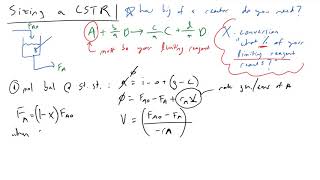 Sizing a CSTR
* how big of a reactor do you need?
A + b/a B → c/a C + d/a D
* must be your limiting reagent
X - conversion
"what % of your limiting reagent reacts?"
F_A0
F_A
① mol bal @ st. st.:
0 = i - o + (g - c)
0 = F_A0 - F_A + r_A V
rate gen/cons of A
F_A = (1-X) F_A0
V = (F_A0 - F_A) / -r_A
when